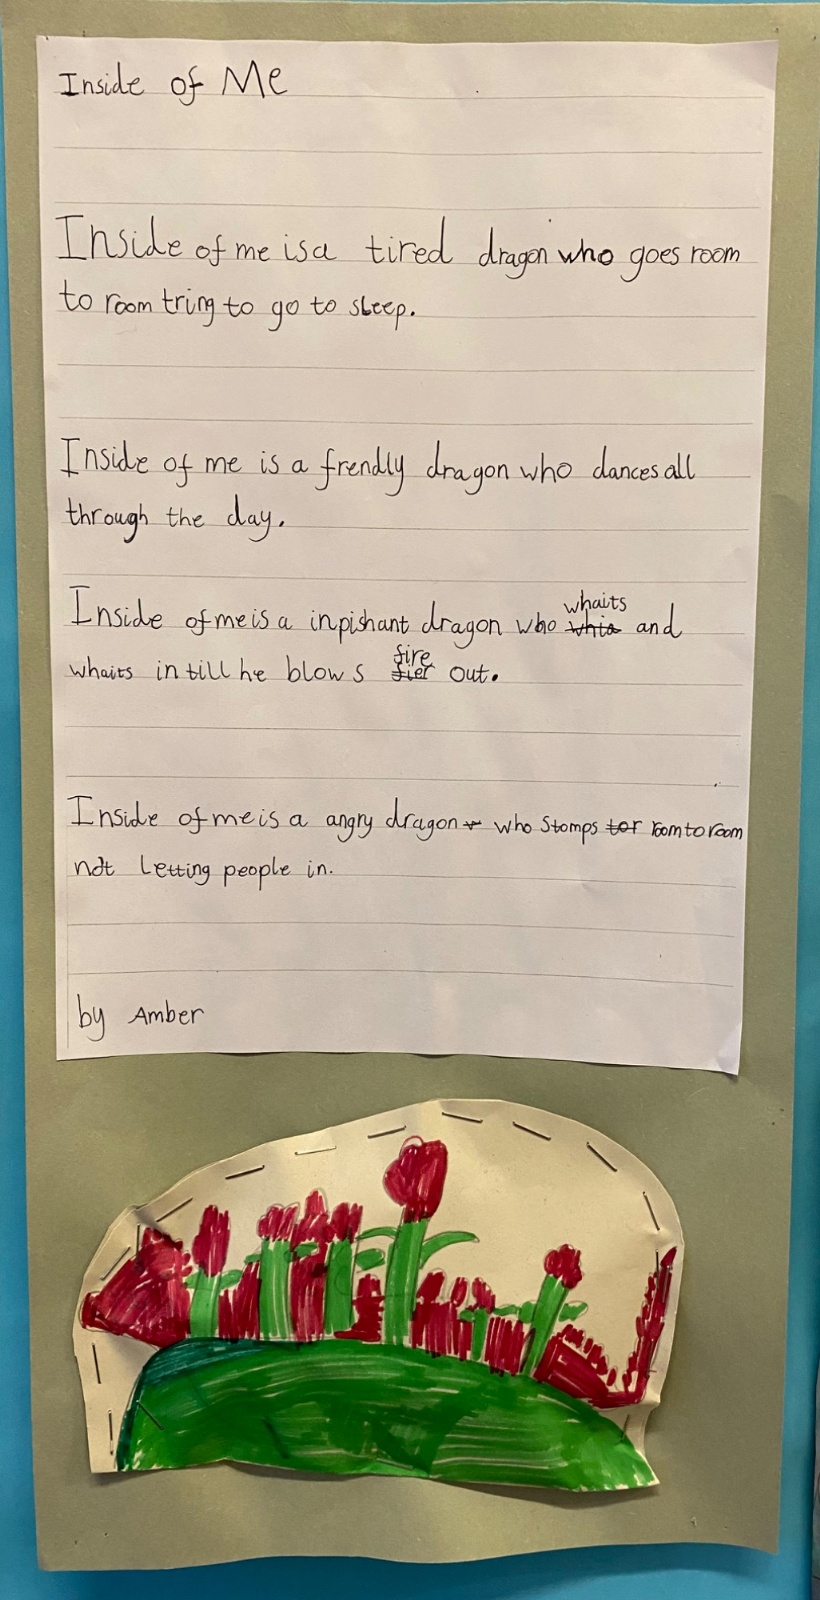 Inside of Me
Inside of me is a tired dragon who goes room
to room tring to go to sleep.
Inside of me is a frendly dragon who dances all
through the day.
Inside of me is a inpishant dragon who whaits and
whaits in till he blows fire out.
Inside of me is a angry dragon who stomps room to room
not letting people in.
by Amber